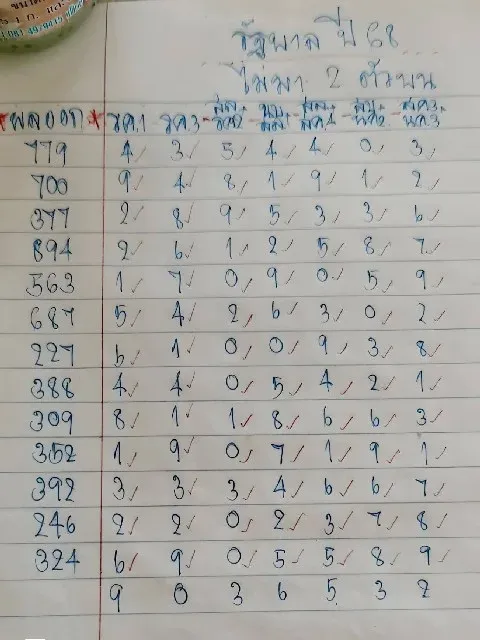 รัฐบาล ปี 68
ไม่มา 2 ตัวบน
*ผลออก*
779 4 3 5 4 4 0 3
700 9 4 8 1 9 1 2
377 2 8 9 5 3 3 6
894 2 6 1 2 5 8 7
563 1 7 0 9 0 5 9
687 5 4 2 6 3 0 2
227 6 1 0 0 9 3 8
388 4 4 0 5 4 2 1
309 8 1 1 8 6 6 3
352 1 9 0 7 1 9 1
392 3 3 3 4 6 6 7
246 2 2 0 2 3 7 8
324 6 9 0 5 5 8 9
9 0 3 6 5 3 2